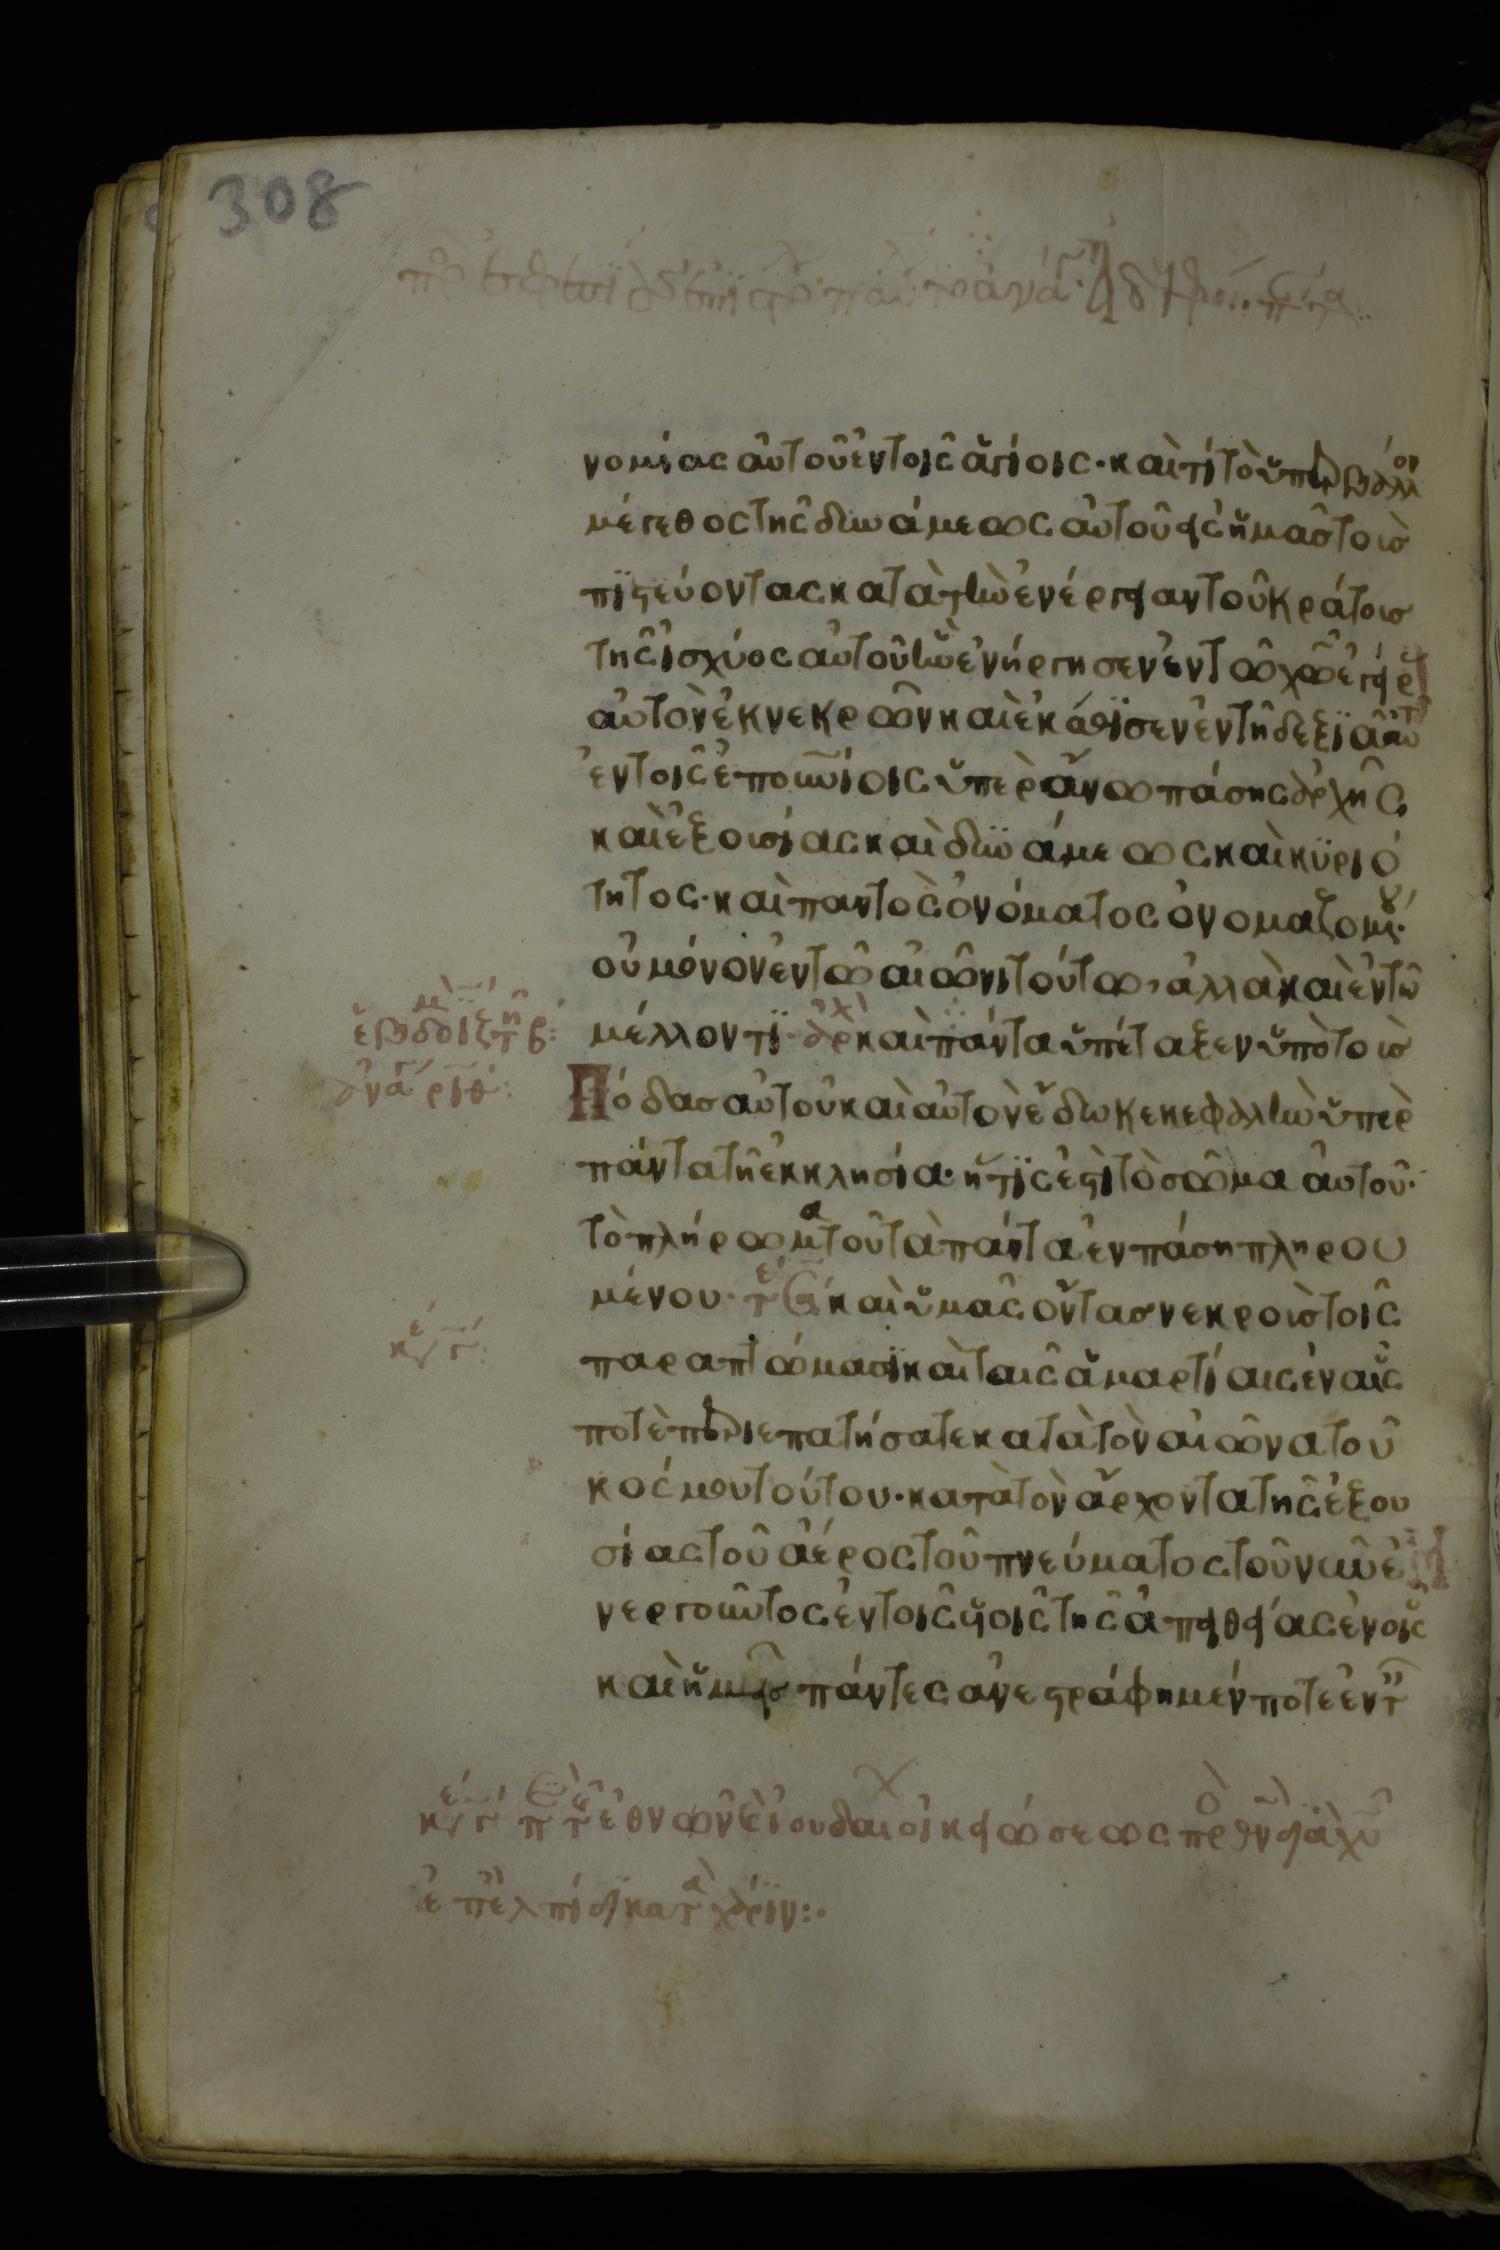 308
νομίας αὐτοῦ ἐν τοῖς ἁγίοις· καὶ τί τὸ ὑπερβάλλον
μέγεθος τῆς δυνάμεως αὐτοῦ εἰς ἡμᾶς τοὺσ
πϊστεύοντας κατὰ τὴν ἐνέργειαν τοῦ κράτουσ
τῆς ἰσχύος αὐτοῦ ἣν ἐνήργησεν ἐν τῶ χῶ ἐγείρ
αὐτὸν ἐκ νεκρῶν καὶ ἐκάθϊσεν ἐν τῆ δεξϊᾶ αὐτοῦ
ἐν τοῖς ἐπουνίοις ὑπεράνω πάσης ἀρχῆς
καὶ ἐξουσίας καὶ δυνάμεως καὶ κϋριό
τητος· καὶ παντὸς ὀνόματος ὀνομαζομένου·
οὐ μόνον ἐν τῶ αἰῶνι τούτω, ἀλλὰ καὶ ἐν τῶ
μέλλοντϊ· ἀρχ καὶ πάντα ὑπέταξεν ὑπὸ τοὺσ
Πόδασ αὐτοῦ καὶ αὐτὸν ἔδωκε κεφαλὴν ὑπὲρ
πάντα τῆ ἐκκλησία· ἥτϊς ἐστὶ τὸ σῶμα αὐτοῦ·
τὸ πλήρωμα τοῦ τὰ πάντα ἐν πάση πληρου
μένου· καὶ ὑμᾶς ὄντασ νεκροὺσ τοῖς
παραπτώμασϊ καὶ ταῖς ἁμαρτίαις ἐν αἷς
ποτὲ περιεπατήσατε κατὰ τὸν αἰῶνα τοῦ
κόσμου τούτου· κατὰ τὸν ἄρχοντα τῆς ἐξου
σίας τοῦ ἀέρος τοῦ πνεύματος τοῦ νῦν ἐ
νεργοῦντος ἐν τοῖς υἱοῖς τῆς ἀπειθείας ἐν οἷς
καὶ ἡμεῖς πάντες ἀνεστράφημέν ποτε ἐν τ
ἐθνῶν ἰουδαι οἰκειώσεως